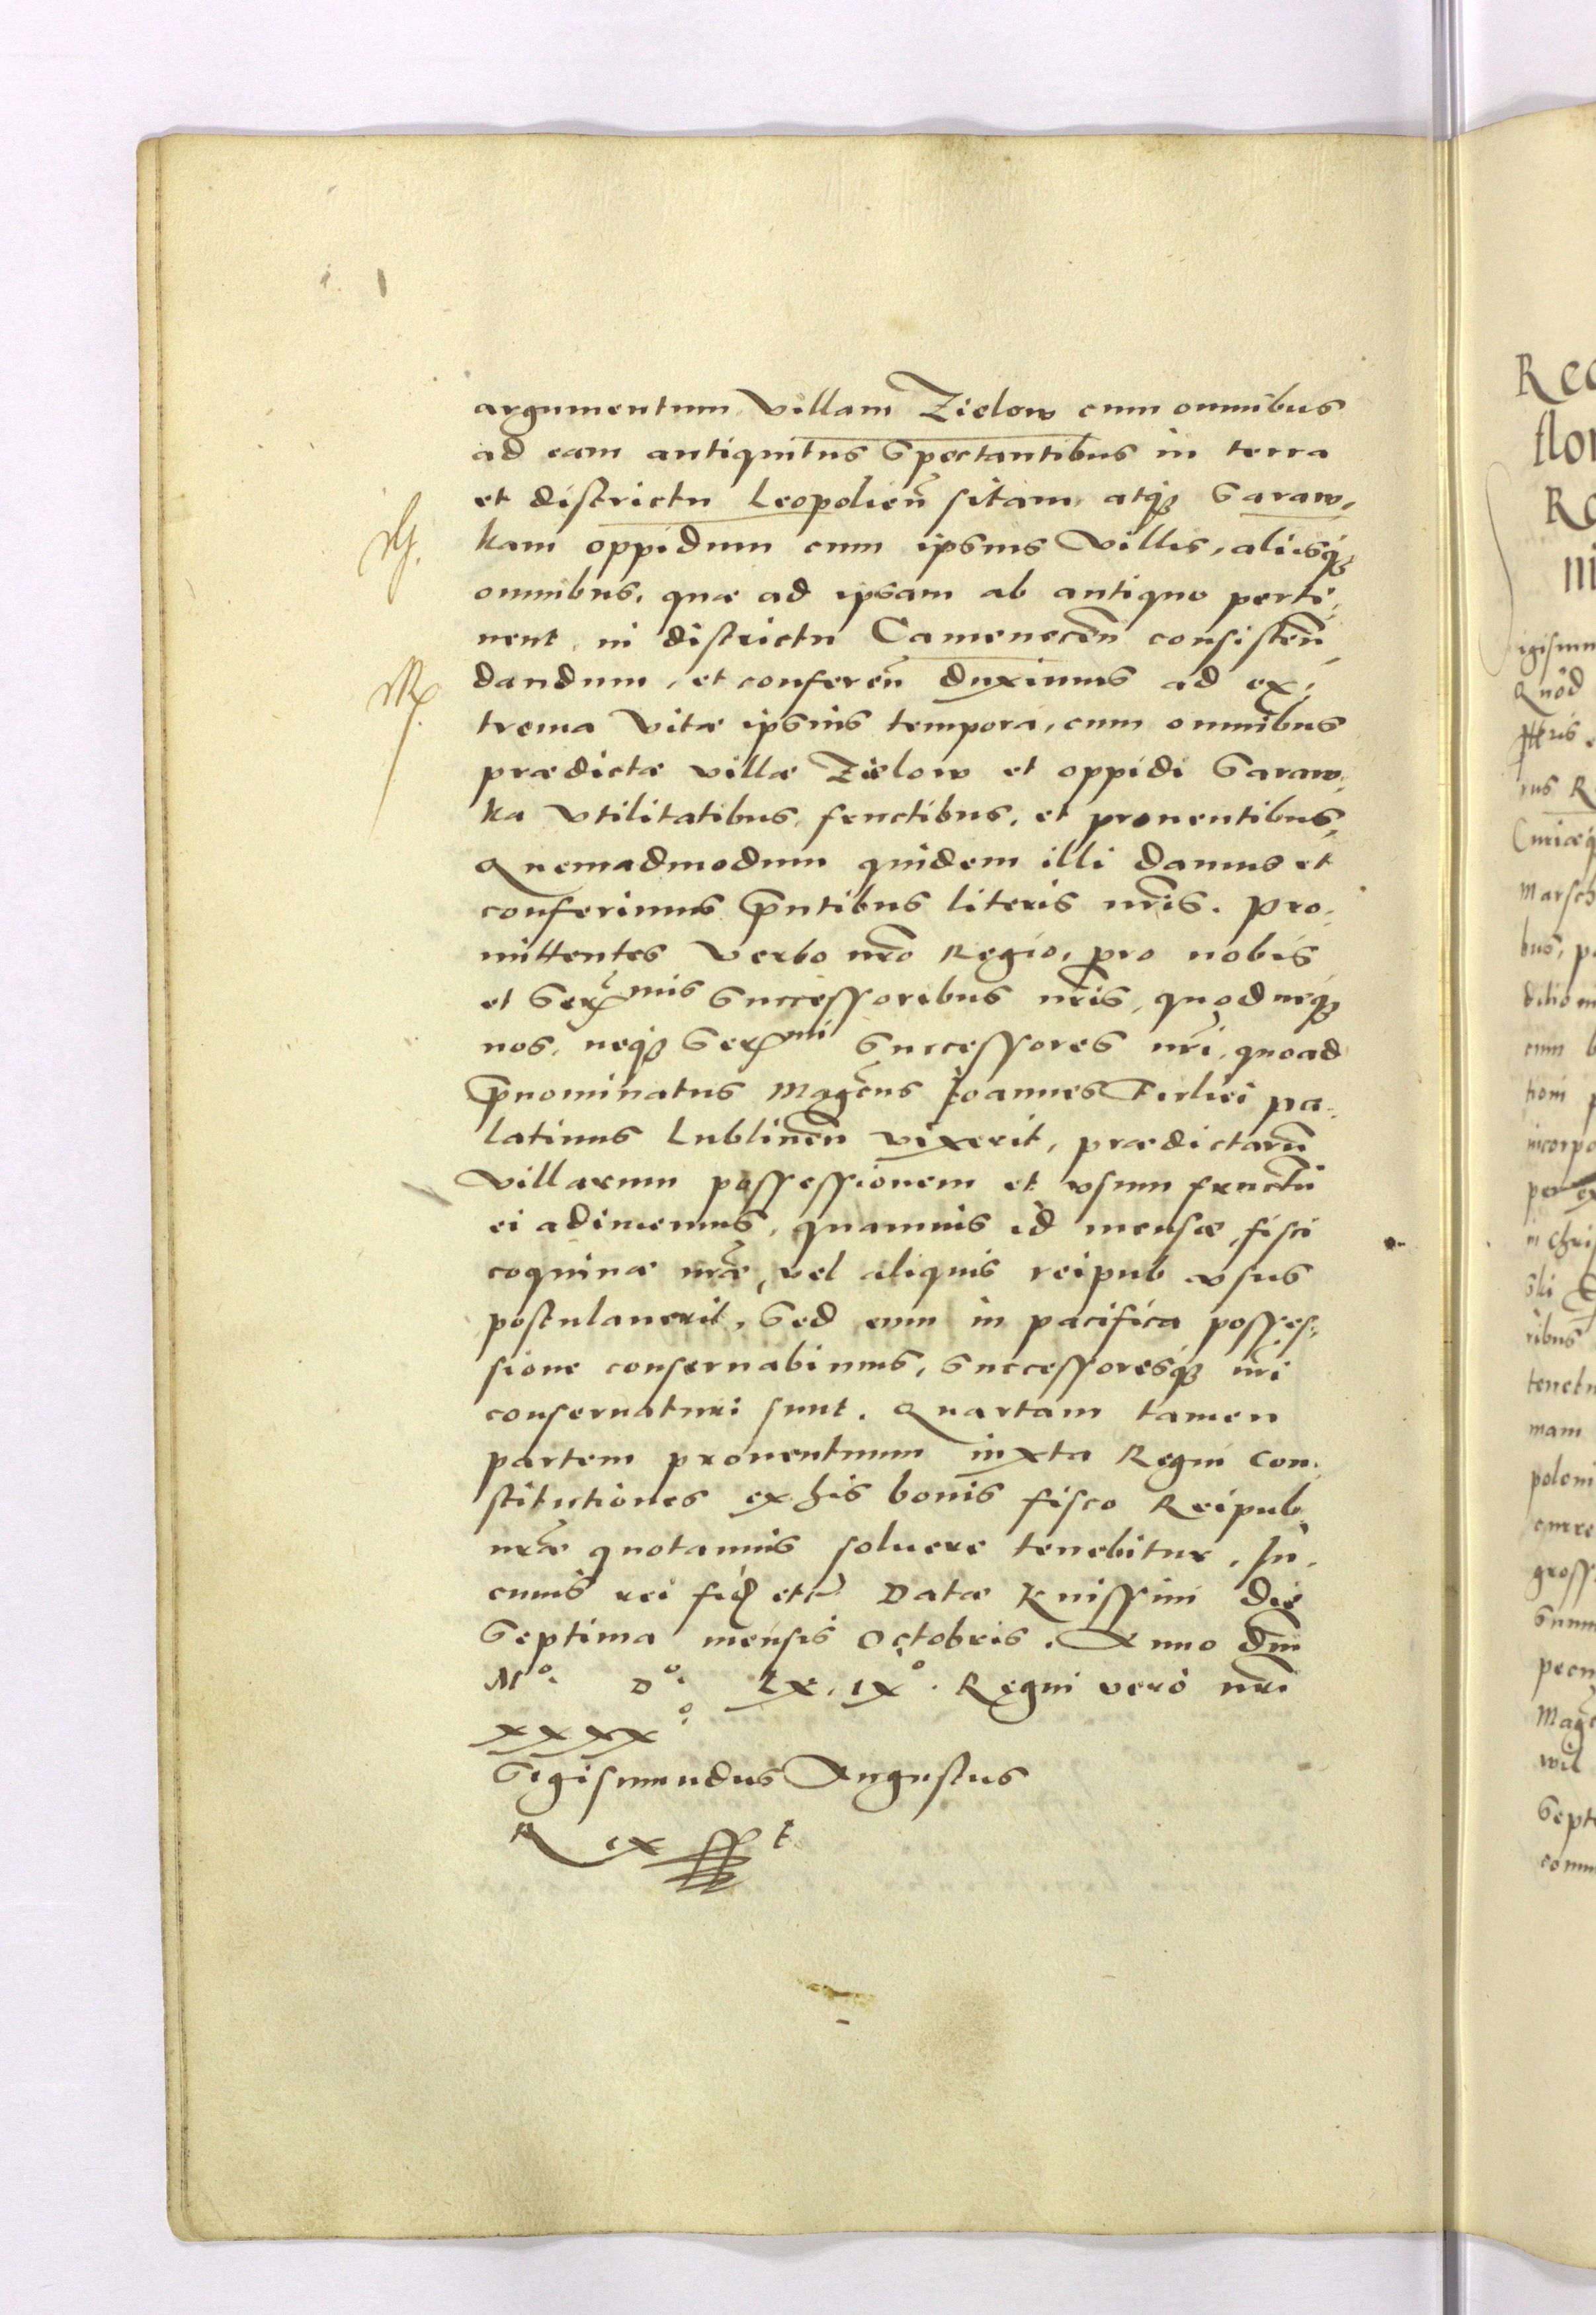 argumentum, villam Zielow cum omnibus
ad eam antiquitus Spectantibus in terra
et districtu Leopolien̄ sitam, atq₃ Saraw,
kam oppidum cum ipsius villis, alijsq₃
omnibus, quæ ad ipsam ab antiquo perti,
nent, in districtu Camenecen̄ consisten̄
dandum, et conferen̄ duximus ad ex,
trema vitæ ipsius tempora, cum omnibus
prædictæ villæ Zielow et oppidi Saraw,
ka vtilitatibus, fructibus, et prouentibus,
Quemadmodum quidem illi damus et
conferimus p̄ntibus literis nr̄is. Pro,
mittentes verbo nr̄o Regio, pro nobis
et Ser̄mis Successoribus nr̄is, quod neq₃
nos, neq₃ Ser̄mi Successores nr̄i, quoad
p̄nominatus Maḡcus Joannes Firliei pa,
latinus Lublinen̄ vixerit, prædictarū
villarum possessionem et vsum fructū
ei adimemus, quamuis id mensæ, fisci
coquinæ nr̄æ, vel aliquis reipub vsus
postulauerit, Sed eum in pacifica posses,
sione conseruabimus, Successoresq₃ nr̄i
conseruaturi sunt. Quartam tamen
partem prouentuum iuxta Regni Con,
stitutiones ex his bonis fisco Reipub
nr̄æ quotannis soluere tenebitur. In,
cuius rei fid etc Datæ Knissini die
Septima mensis Octobris. Anno Dn̄i
Mº. Dº. LX. IXº. Regni verò nr̄i
XXXXº
Sigismundus Augustus
Rex sst